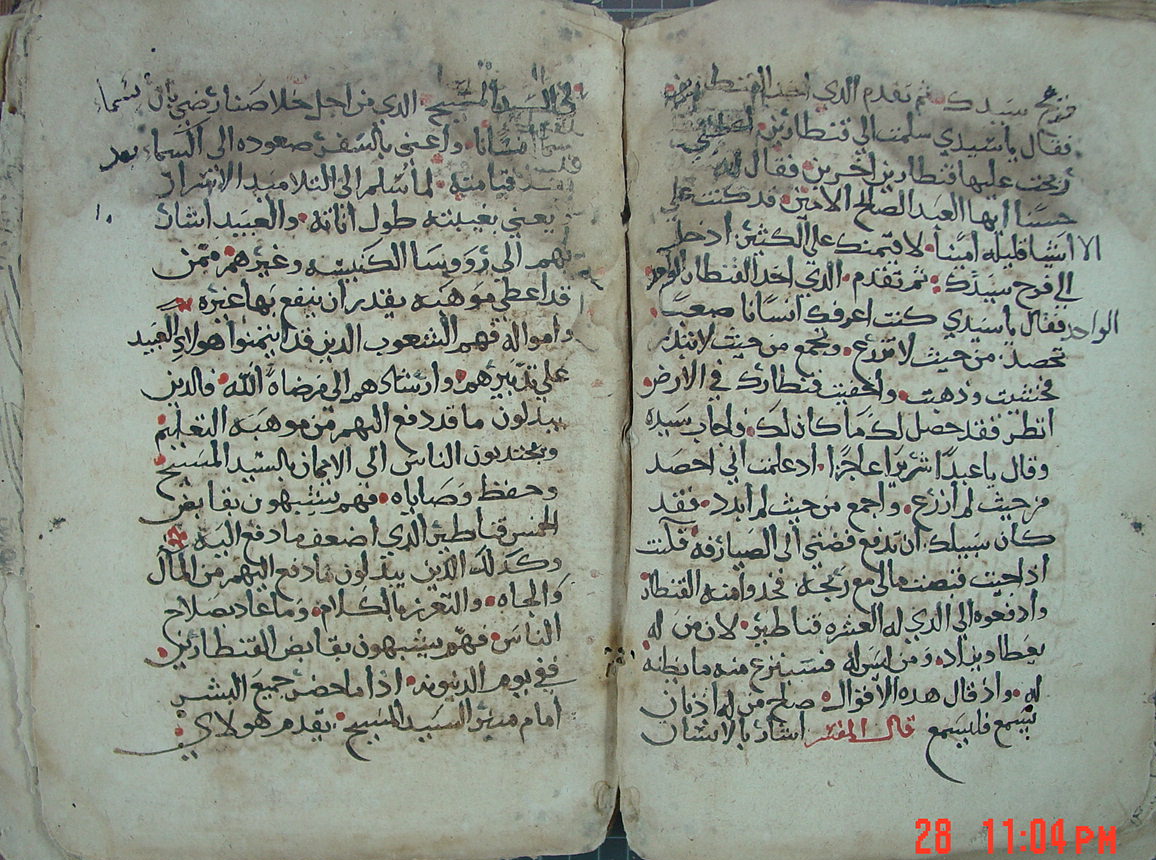 فرح سيدك ثم تقدم الدي اخد القنطارين
فقال ياسيدي سلمت الي قنطارين
ربحت عليها قنطارين اخرين فقال له
حسنا ايها العبد الصالح الامين قد كنت علي
الاشيا قليله امينا لاقيمنك علي الكثير ادخل
الي فرح سيدك ثم تقدم الدي اخد القنطار الواحد
الواحد فقال ياسيدي كنت اعرفك انسانا صعبا
تحصد من حيث لا تزرع وتجمع من حيث لا تبدر
فخشيت وذهبت واخفيت قنطارك في الارض
انظر فقد حصل لك ما كان لك واجاب سيده
وقال ياعبدا شريرا عاجزا ادعلمت اني احصد
من حيث لم ازرع واجمع من حيث لم ابدد فقد
كان سبيلك ان تدفع فضتي الي الصيارفه فكنت
اذا جيت قبضت مالي مع ربحه فخدوا منه القنطار
وادفعوه الي الدي له العشره قناطير لان من له
يعطا ويزاد ومن ليس له فسينزع منه ما يظنه
له واذ قال هده الاقوال صاح من له اذنان
تسمع فليسمع قال المفسر اشار بالانسان
الي السيد المسيح الدي من اجل خلاصنا رضي بان يسما
انسانا واعني بالسفر صعوده الي السما بعد
قيامته لما سلم الي التلاميد الاسرار
يعني بغيبته طول اناته والعبيد اشار
بهم الي رووسا الكنيسه وغيرهم ممن
قد اعطي موهبه يقدر ان ينفع بها غيره
وامواله فهم الشعوب الدين قد ايتمنوا هولاي العبيد
علي تدبيرهم وارشادهم الي مرضاة الله فالدين
يبدلون ما قد دفع اليهم من موهبه التعليم
ويجتدبون الناس الي الايمان بالسيد المسيح
وحفظ وصاياه فهم يشبهون بقابض
الخمس قناطير الدي اضعف ما دفع اليه
وكذلك الدين يبدلون ما دفع اليهم من المال
والجاه والتعزز بالكلام وما عاد بصلاح
الناس فهم يشبهون بقابض القنطارين
ففي يوم الدينونه اذا ما حضر جميع البشر
امام منبر السيد المسيح يتقدم هولاي
28 11:04 PM